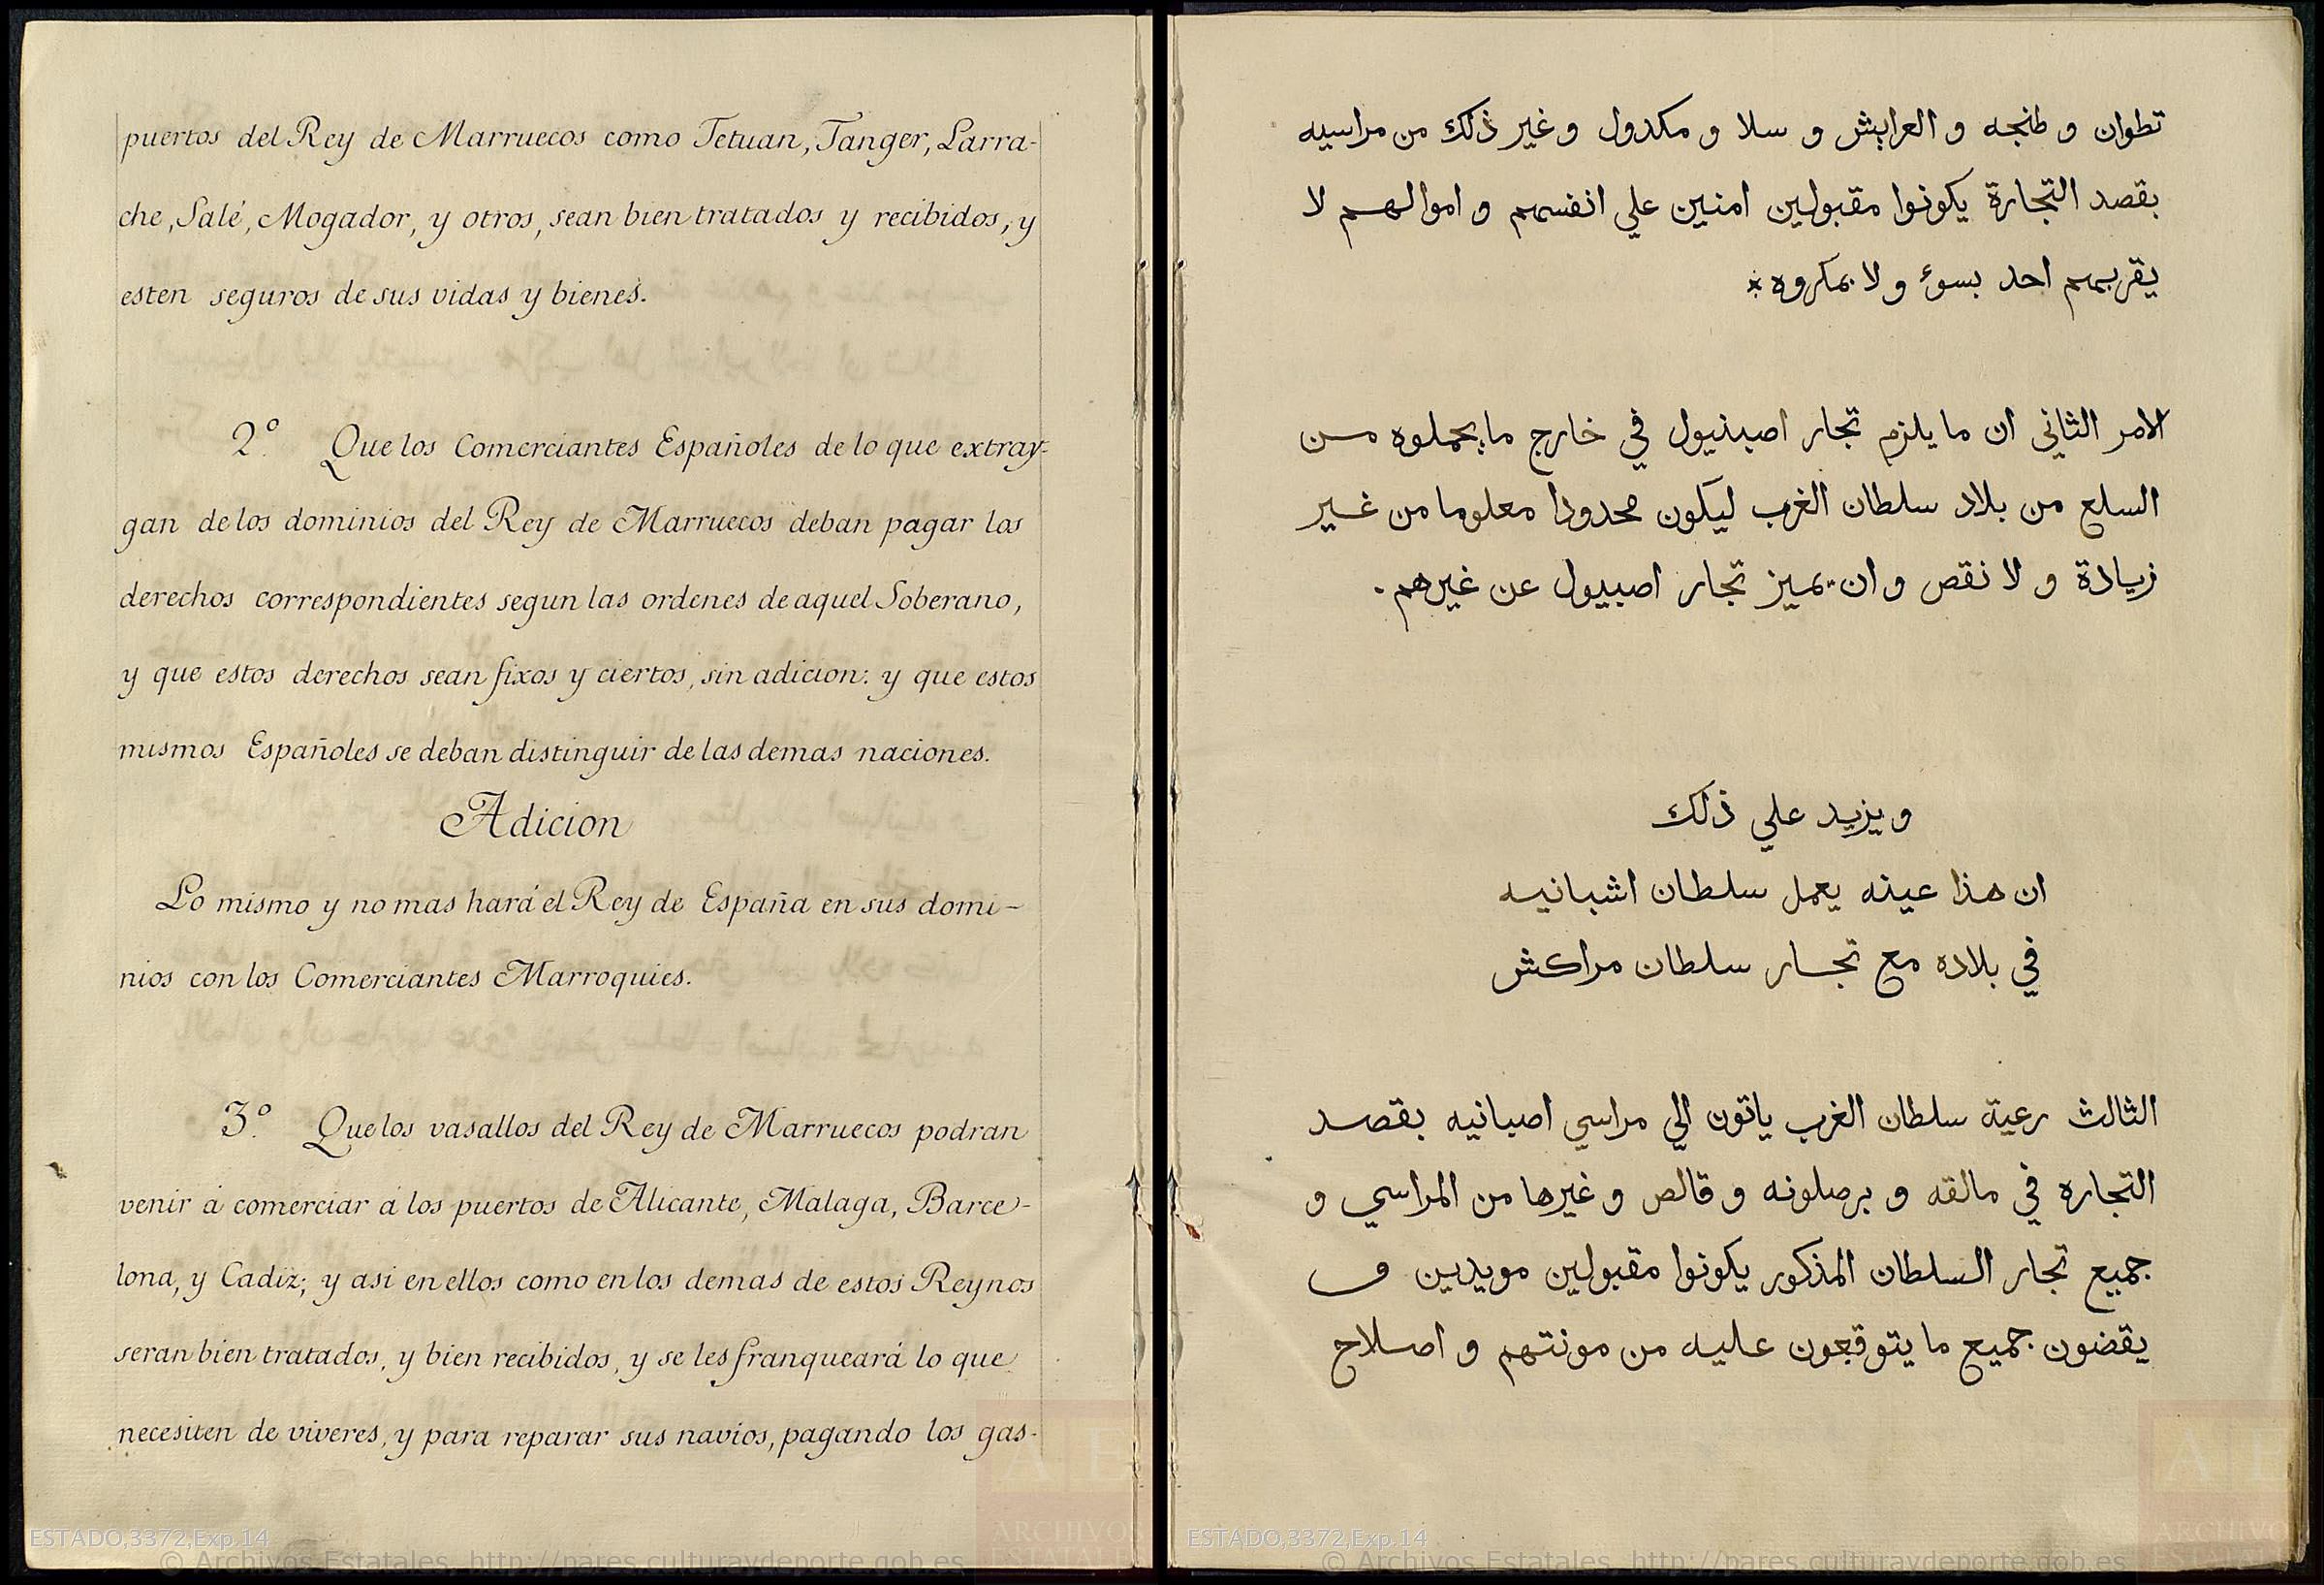 puertos del Rey de Marruecos como Tetuan, Tanger, Larra-
che, Salé, Mogador, y otros, sean bien tratados y recibidos, y
esten seguros de sus vidas y bienes.
2.º Que los Comerciantes Españoles de lo que extray-
gan de los dominios del Rey de Marruecos deban pagar los
derechos correspondientes segun las ordenes de aquel Soberano,
y que estos derechos sean fixos y ciertos, sin adicion: y que estos
mismos Españoles se deban distinguir de las demas naciones.
Adicion
Lo mismo y no mas hará el Rey de España en sus domi-
nios con los Comerciantes Marroquies.
3.º Que los vasallos del Rey de Marruecos podran
venir á comerciar á los puertos de Alicante, Malaga, Barce-
lona, y Cadiz; y asi en ellos como en los demas de estos Reynos
seran bien tratados, y bien recibidos, y se les franqueará lo que
necesiten de viveres, y para reparar sus navios, pagando los gas-
ESTADO,3372,Exp.14
© Archivos Estatales, http://pares.culturaydeporte.gob.es
تطوان و طنجه و العرايش و سلا و مكدول و غير ذلك من مراسيه
بقصد التجارة يكونوا مقبولين امنين علي انفسهم و اموالهم لا
يقربهم احد بسوء و لا بمكروه *
الامر الثاني ان ما يلزم تجار اصبنيول في خارج ما يحملوه مـن
السلع من بلاد سلطان الغرب ليكون محدودا معلوما من غـير
زيادة و لا نقص و ان يميز تجار اصبيول عن غيرهم .
و يزيد علي ذلك
ان هذا عينه يعمل سلطان اشبانيه
في بلاده مع تجـار سلطان مراكش
الثالث رعية سلطان الغرب ياتون الي مراسي اصبانيه بقصـد
التجاره في مالقه و برصلونه و قالص و غيرها من المراسي و
جميع تجار السلطان المذكور يكونوا مقبولين مويدين و
يقضون جميع ما يتوقعون عليه من مونتهم و اصـلاح
ESTADO,3372,Exp.14
© Archivos Estatales, http://pares.culturaydeporte.gob.es
ARCHIVOS
ESTATALES